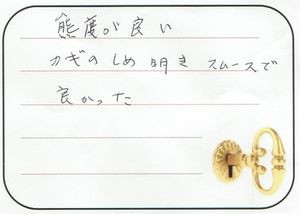 態度が良い
カギのしめ明き スムースで
良かった